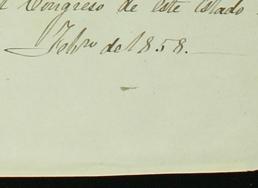 Congreso de este Estado
Febro de 1858.